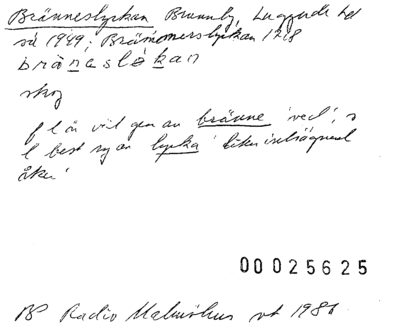 Bränneslyckan Brunnby, Luggude hd
så 1949; Brämmerslyckan 1718
bränaslökan
skog
f l är väl gen av bränne 'ved', s
l best sg av lycka 'liten inhägnad
åker'
00025625
BP Radio Malmöhus vt 1981